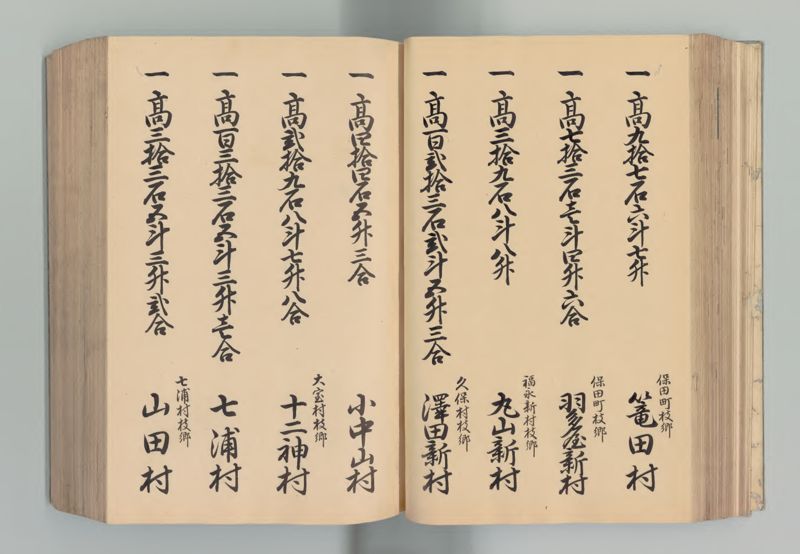 一高九拾七石六斗七升
保田町枝郷
篭田村
一高七拾三石壱斗四升六合
保田町枝郷
羽多屋新村
一高三拾九石八斗八升
福永新村枝郷
丸山新村
一高百弐拾三石弐斗五升三合
久保村枝郷
澤田新村
一高四拾四石五升三合
小中山村
一高弐拾九石八斗七升八合
大室村枝郷
十二神村
一高百三拾三石五斗三升壱合
七浦村
一高三拾三石五斗三升弐合
七浦村枝郷
山田村